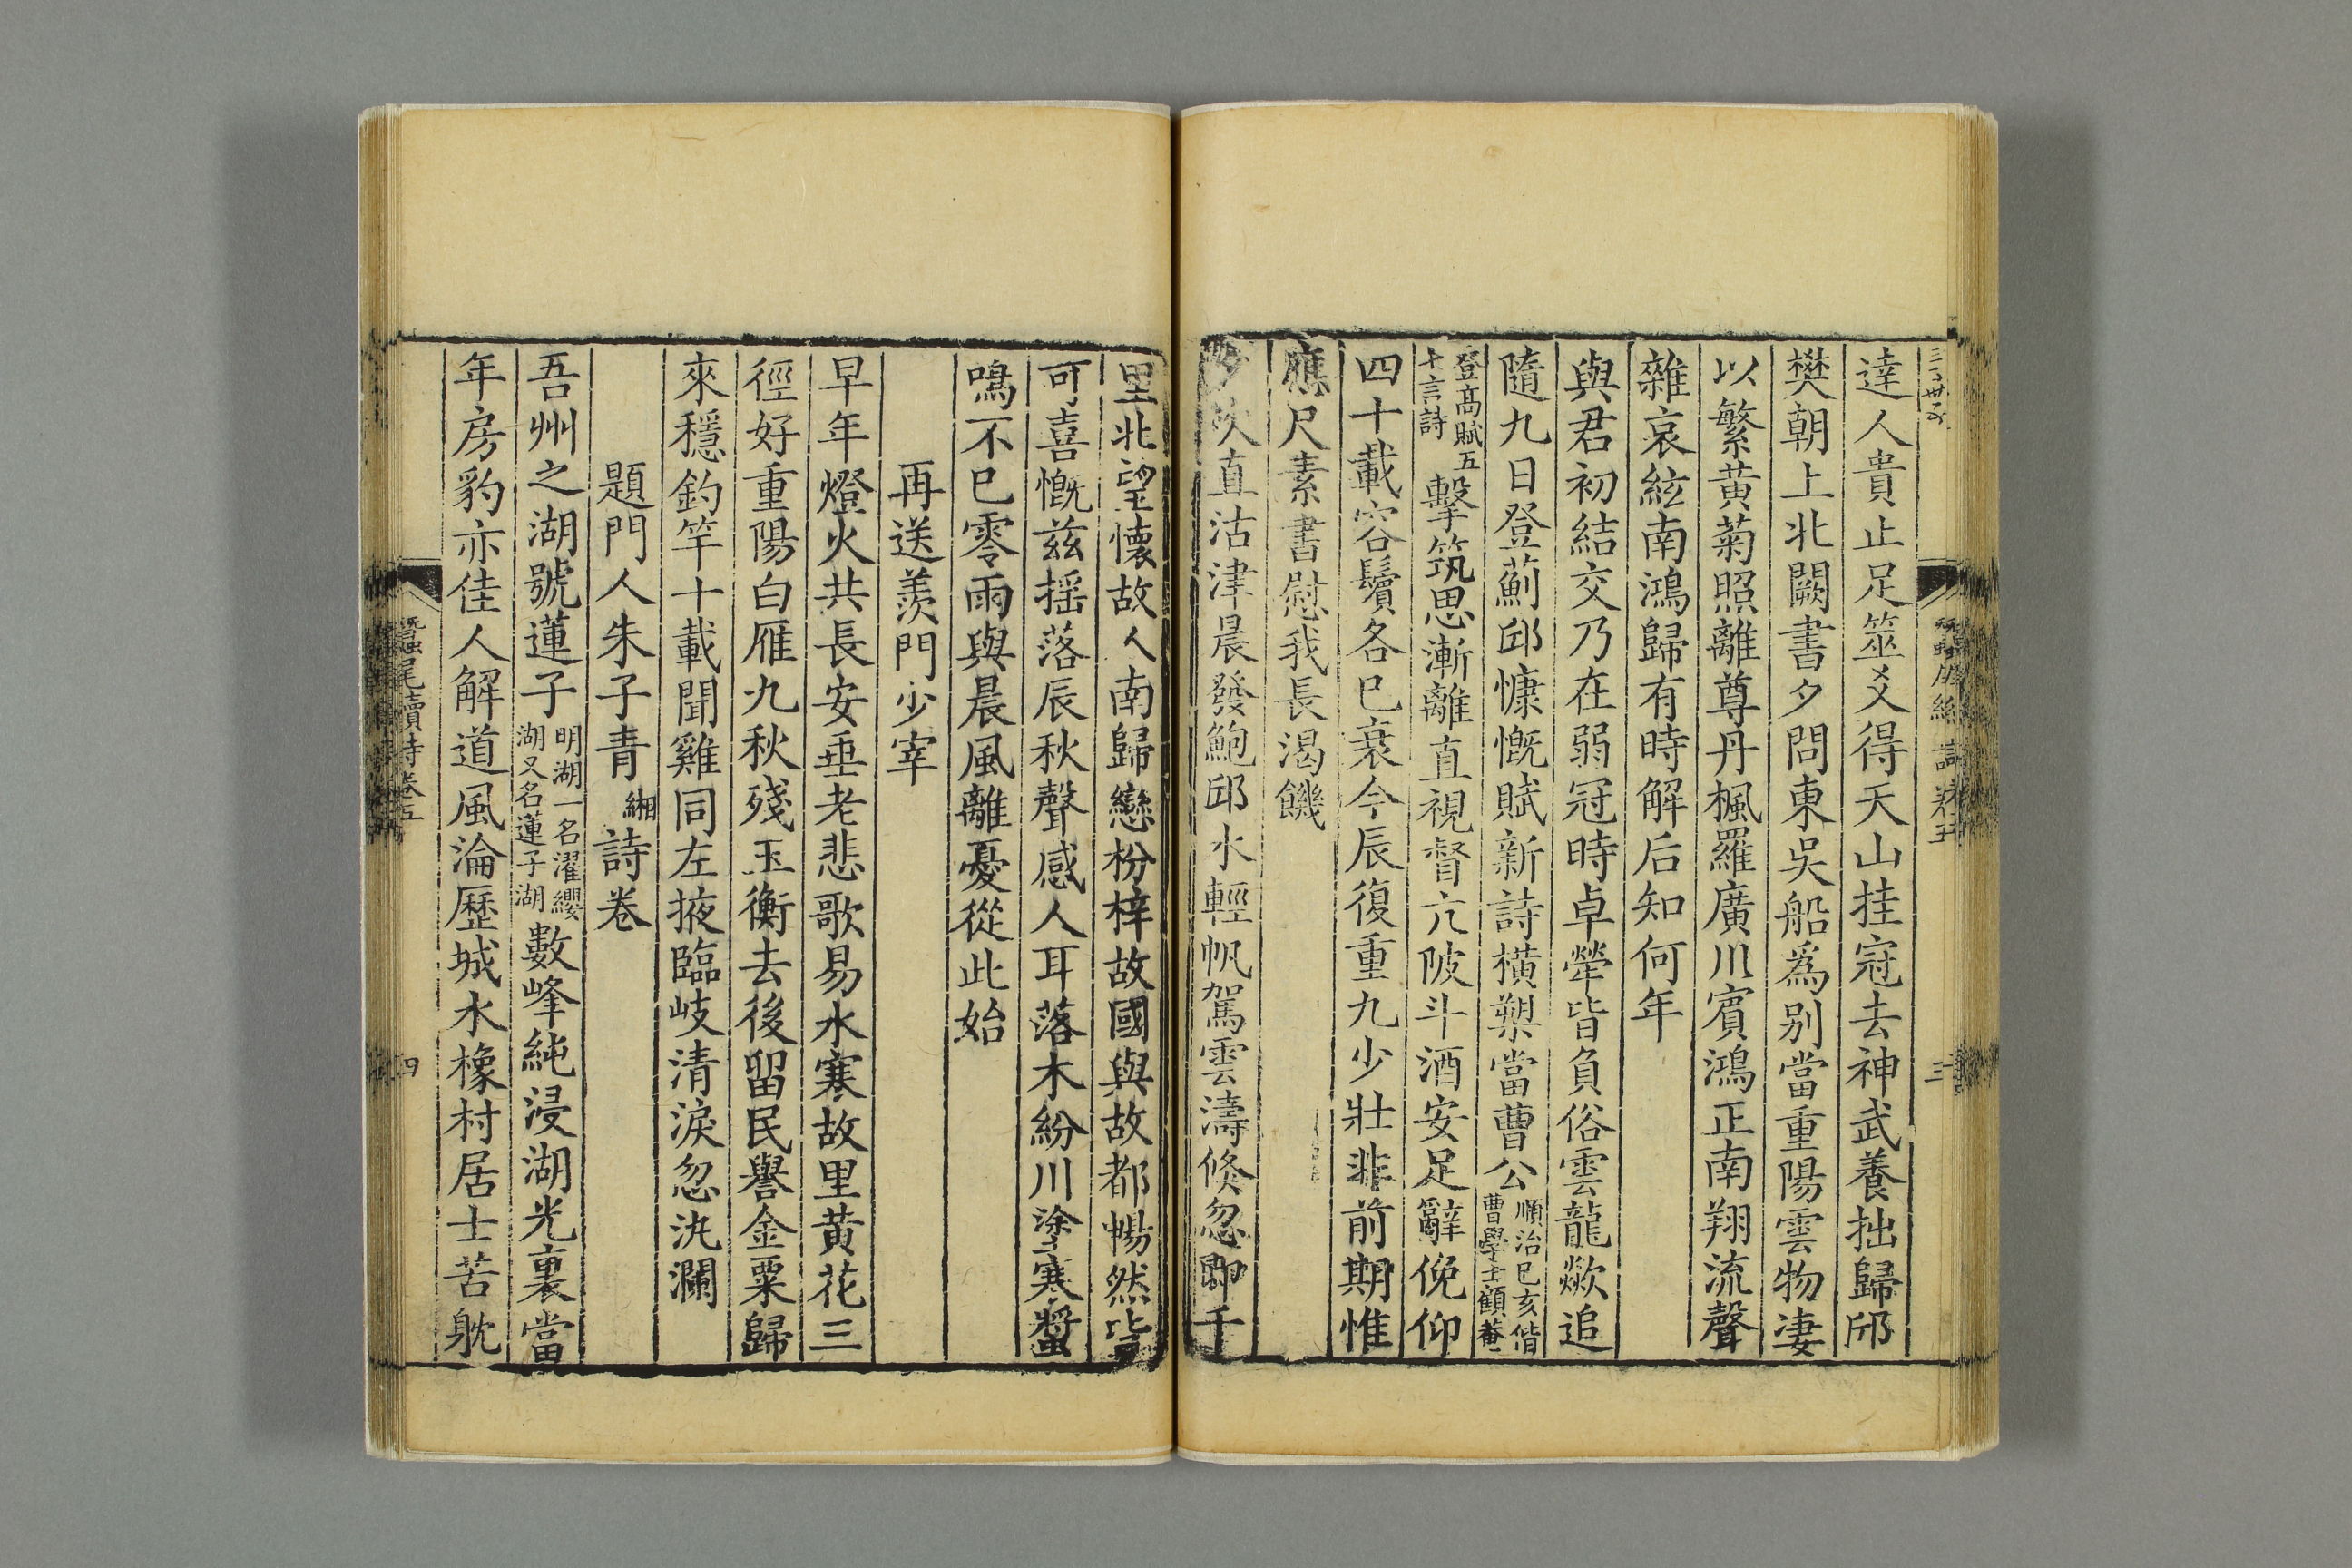 達人貴止足筮爻得天山挂冠去神武養拙歸邱
樊朝上北闕書夕問東吳船爲别當重陽雲物凄
以繁黄菊照離尊丹楓羅廣川賓鴻正南翔流聲
雜哀絃南鴻歸有時解后知何年
與君初結交乃在弱冠時卓犖皆負俗雲龍歘追
隨九日登薊邱慷慨賦新詩横槊當曹公順治已亥偕
曹學士顧菴
登髙賦五
七言詩擊筑思漸離直視督亢陂斗酒安足辭俛仰
四十載容鬢各已衰今辰復重九少壯非前期惟
應尺素書慰我長渴饑
直沽津晨發鮑邱水輕帆駕雲濤倏忽卽千
里北望懷故人南歸戀枌梓故國與故都暢然皆
可喜慨兹揺落辰秋聲感人耳落木紛川塗寒螿
鳴不已零雨與晨風離憂從此始
再送羨門少宰
早年燈火共長安垂老悲歌易水寒故里黄花三
徑好重陽白雁九秋殘玉衡去後留民譽金粟歸
來穩釣竿十載聞雞同左掖臨岐清淚忽汍瀾
題門人朱子青緗詩卷
吾州之湖號蓮子明湖一名濯纓
湖又名蓮子湖數峰純浸湖光裏當
年房豹亦佳人解道風淪歷城水橡村居士苦躭
蠶尾續詩卷五
四